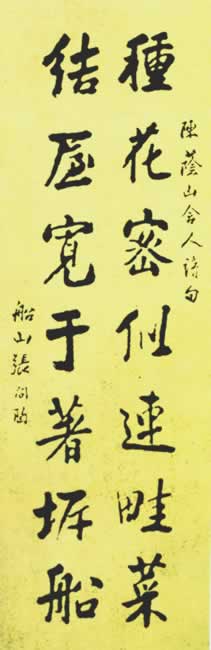 陳蔭山舍人詩句
種花密似連畦菜
結屋寬于著坼船
船山張問陶